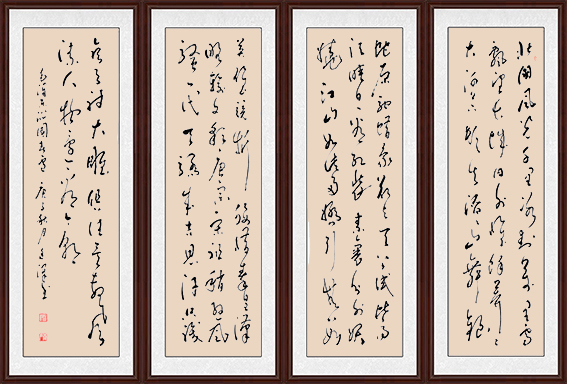 北国风光千里冰封万里雪
飘望长城内外惟余莽莽
大河上下顿失滔滔山舞银
蛇原驰蜡象欲与天公试比高
须晴日看红装素裹分外妖
娆江山如此多娇引无数
英雄竞折腰惜秦皇汉
武略输文采唐宗宋祖稍逊风
骚一代天骄成吉思汗只识
弯弓射大雕俱往矣数风
流人物还看今朝
毛泽东沁园春雪庚子秋月